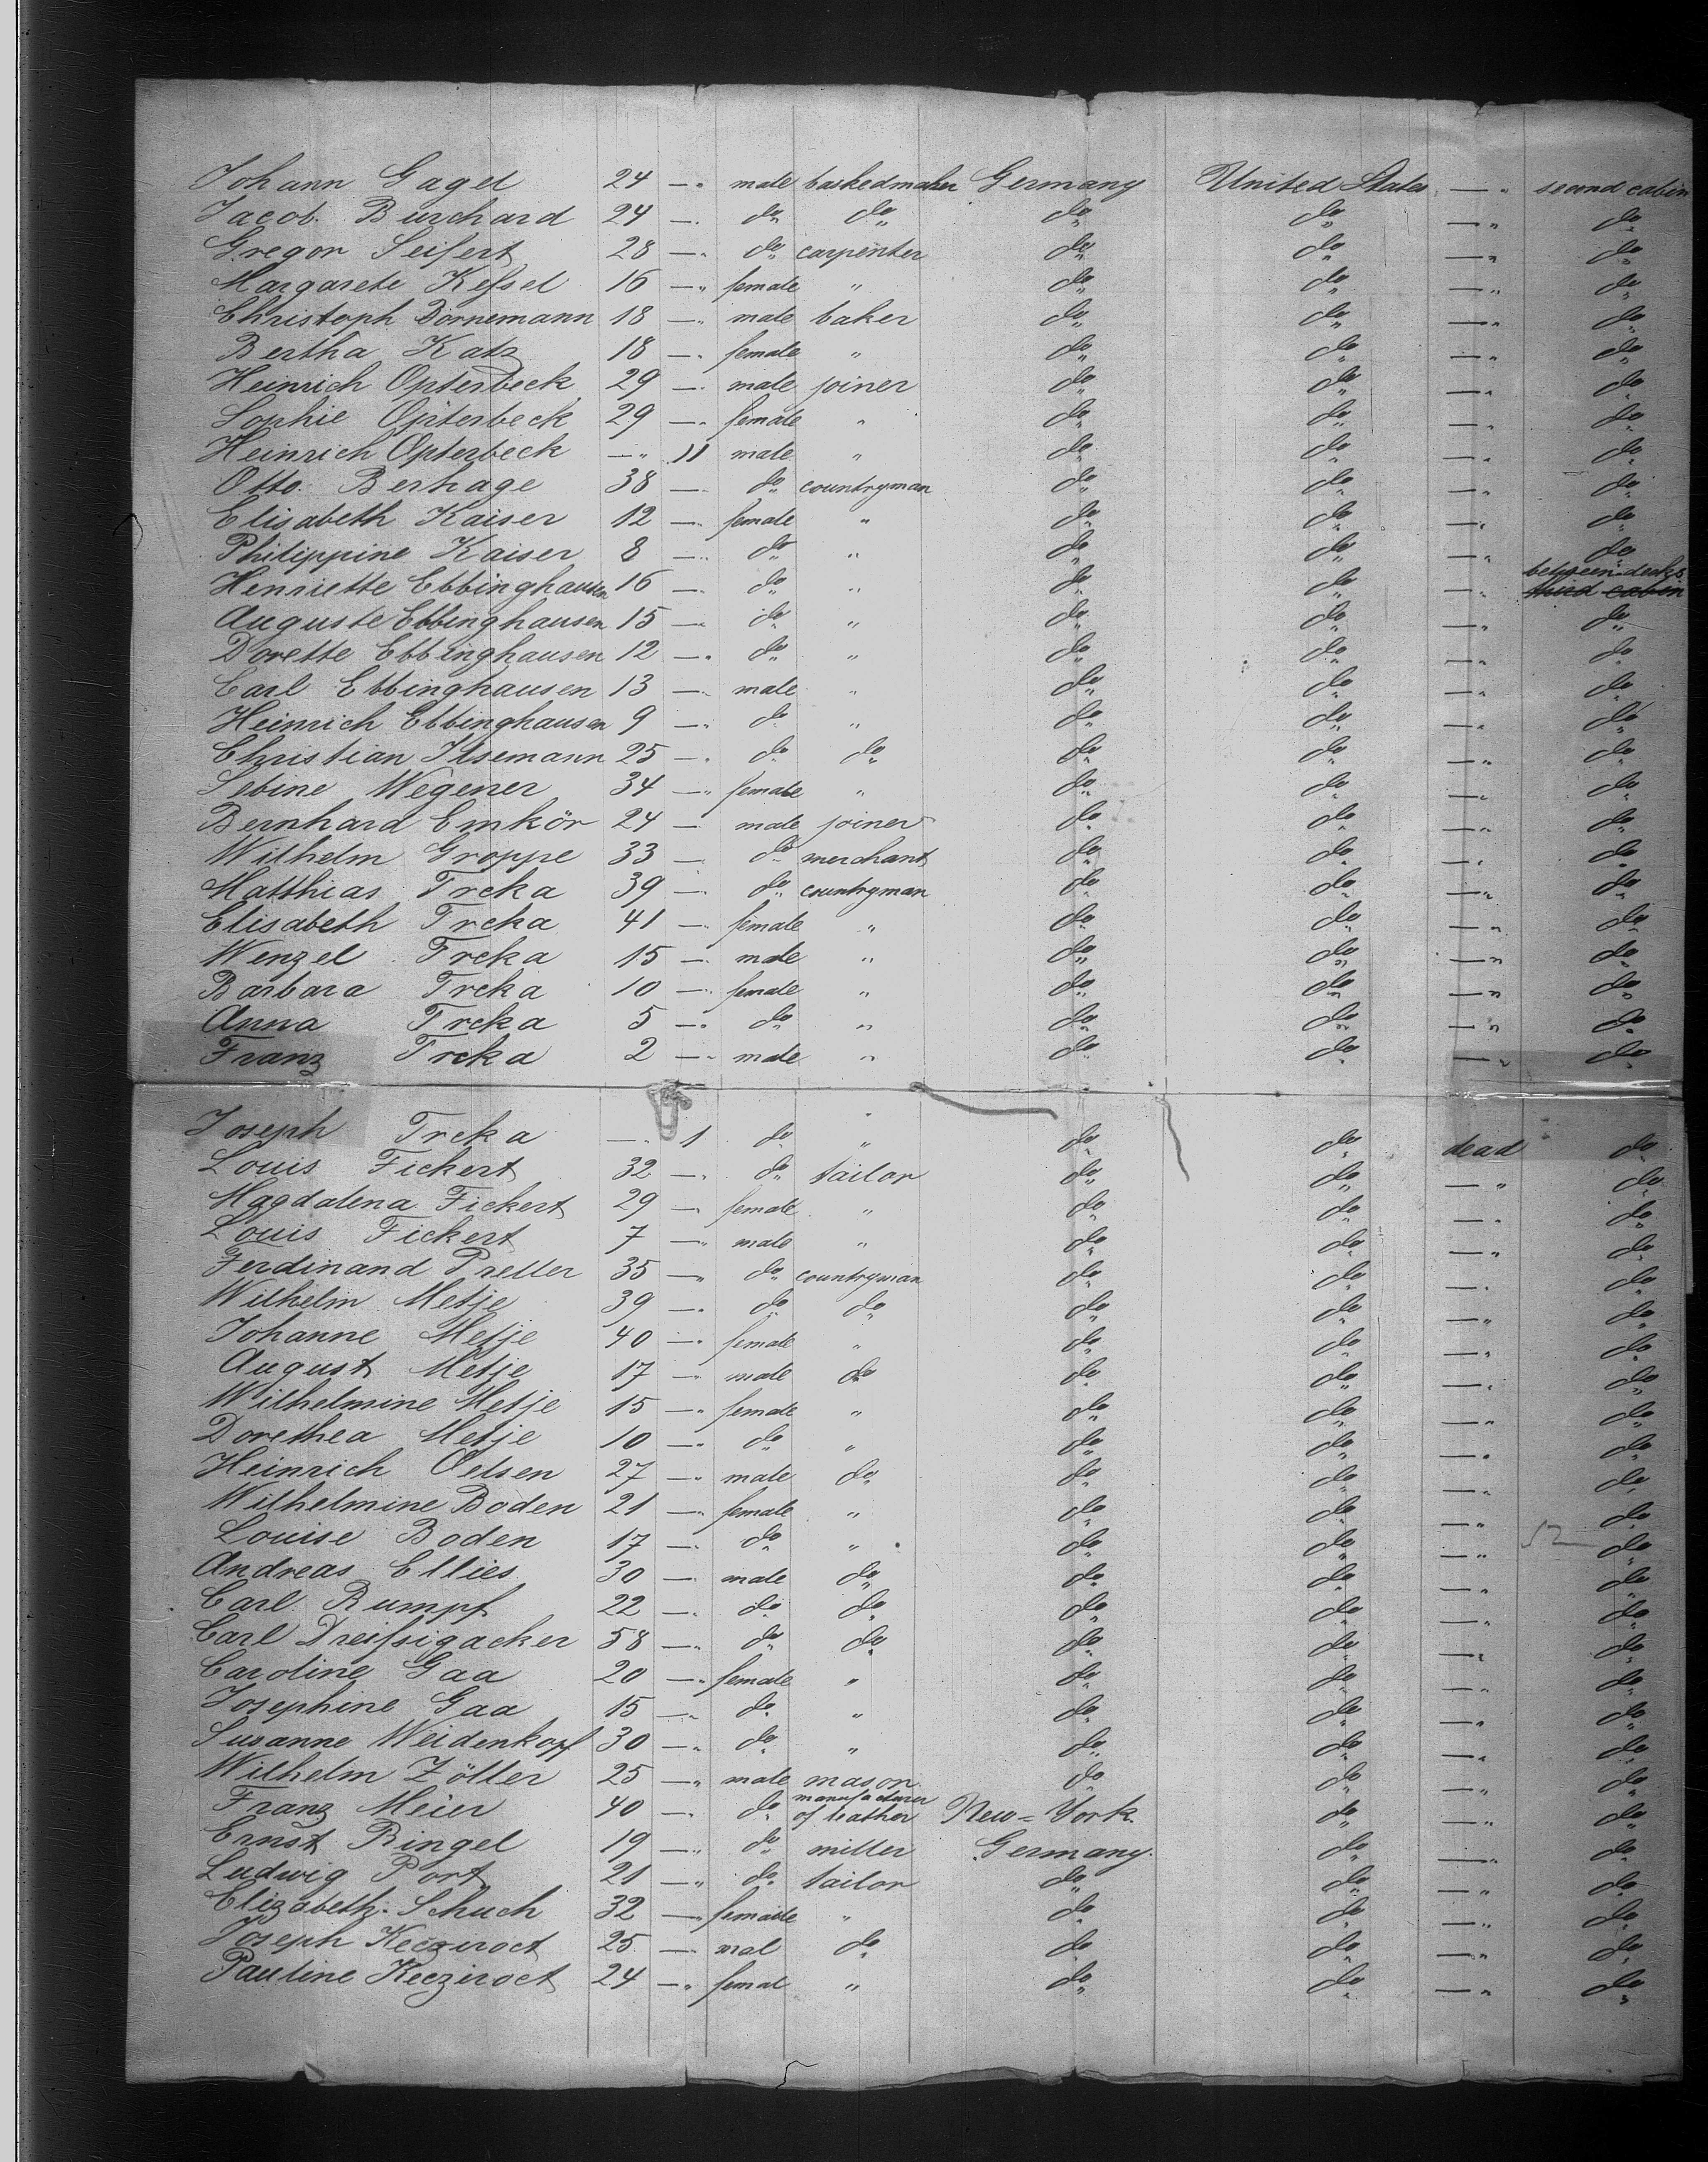 Johann Gagel 24 —" male baskedmaker Germany United States —" second cabin
Jacob Burchard 24 —" do do do do —" do
Gregor Seifert 28 —" do carpenter do do —" do
Margarete Keſsel 16 —" female " do do —" do
Christoph Dörnemann 18 —" male baker do do —" do
Bertha Katz 18 —" female " do do —" do
Heinrich Opterbeck 29 —" male joiner do do —" do
Sophie Opterbeck 29 —" female " do do —" do
Heinrich Opterbeck —" 11 male " do do —" do
Otto Berhage 38 —" do countryman do do —" do
Elisabeth Kaiser 12 —" female " do do —" do
Philippine Kaiser 8 —" do " do do —" do
Henriette Ebbinghausen 16 —" do " do do —" between decks
Auguste Ebbinghausen 15 —" do " do do —" do
Dorette Ebbinghausen 12 —" do " do do —" do
Carl Ebbinghausen 13 —" male " do do —" do
Heinrich Ebbinghausen 9 —" do " do do —" do
Christian Ilsemann 25 —" do do do do —" do
Sebine Wegener 34 —" female " do do —" do
Bernhard Emkör 24 —" male joiner do do —" do
Wilhelm Groppe 33 —" do merchant do do —" do
Matthias Treka 39 —" do countryman do do —" do
Elisabeth Treka 41 —" female " do do —" do
Wenzel Treka 15 —" male " do do —" do
Barbara Treka 10 —" female " do do —" do
Anna Treka 5 —" do " do do —" do
Franz Treka 2 —" male " do do —" do
Joseph Treka —" 1 do " do do dead do
Louis Fickert 32 —" do tailor do do —" do
Magdalena Fickert 29 —" female " do do —" do
Louis Fickert 7 —" male " do do —" do
Ferdinand Preller 35 —" do countryman do do —" do
Wilhelm Metje 39 —" do do do do —" do
Johanne Metje 40 —" female " do do —" do
August Metje 17 —" male do do do —" do
Wilhelmine Metje 15 —" female " do do —" do
Dorethea Metje 10 —" do " do do —" do
Heinrich Oelsen 27 —" male do do do —" do
Wilhelmine Boden 21 —" female " do do —" do
Louise Boden 17 —" do " do do —" do
Andreas Ellies 30 —" male do do do —" do
Carl Rumpf 22 —" do do do do —" do
Carl Dreiſsigacker 58 —" do do do do —" do
Caroline Gaa 20 —" female " do do —" do
Josephine Gaa 15 —" do " do do —" do
Susanne Weidenkopf 30 —" do " do do —" do
Wilhelm Zöller 25 —" male mason do do —" do
Franz Meier 40 —" do manufacturer of leather New-York do —" do
Ernst Ringel 19 —" do miller Germany do —" do
Ludwig Port 21 —" do tailor do do —" do
Elizabeth Schuch 32 —" female " do do —" do
Joseph Kecziroct 25 —" mal do do do —" do
Pauline Kecziroct 24 —" femal " do do —" do